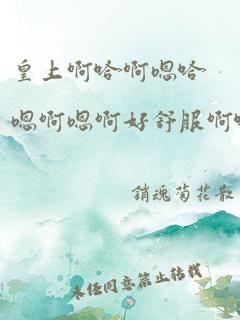 皇上啊哈啊嗯哈
嗯啊嗯啊好舒服啊
銷魂菊花散
未经同意禁止转载